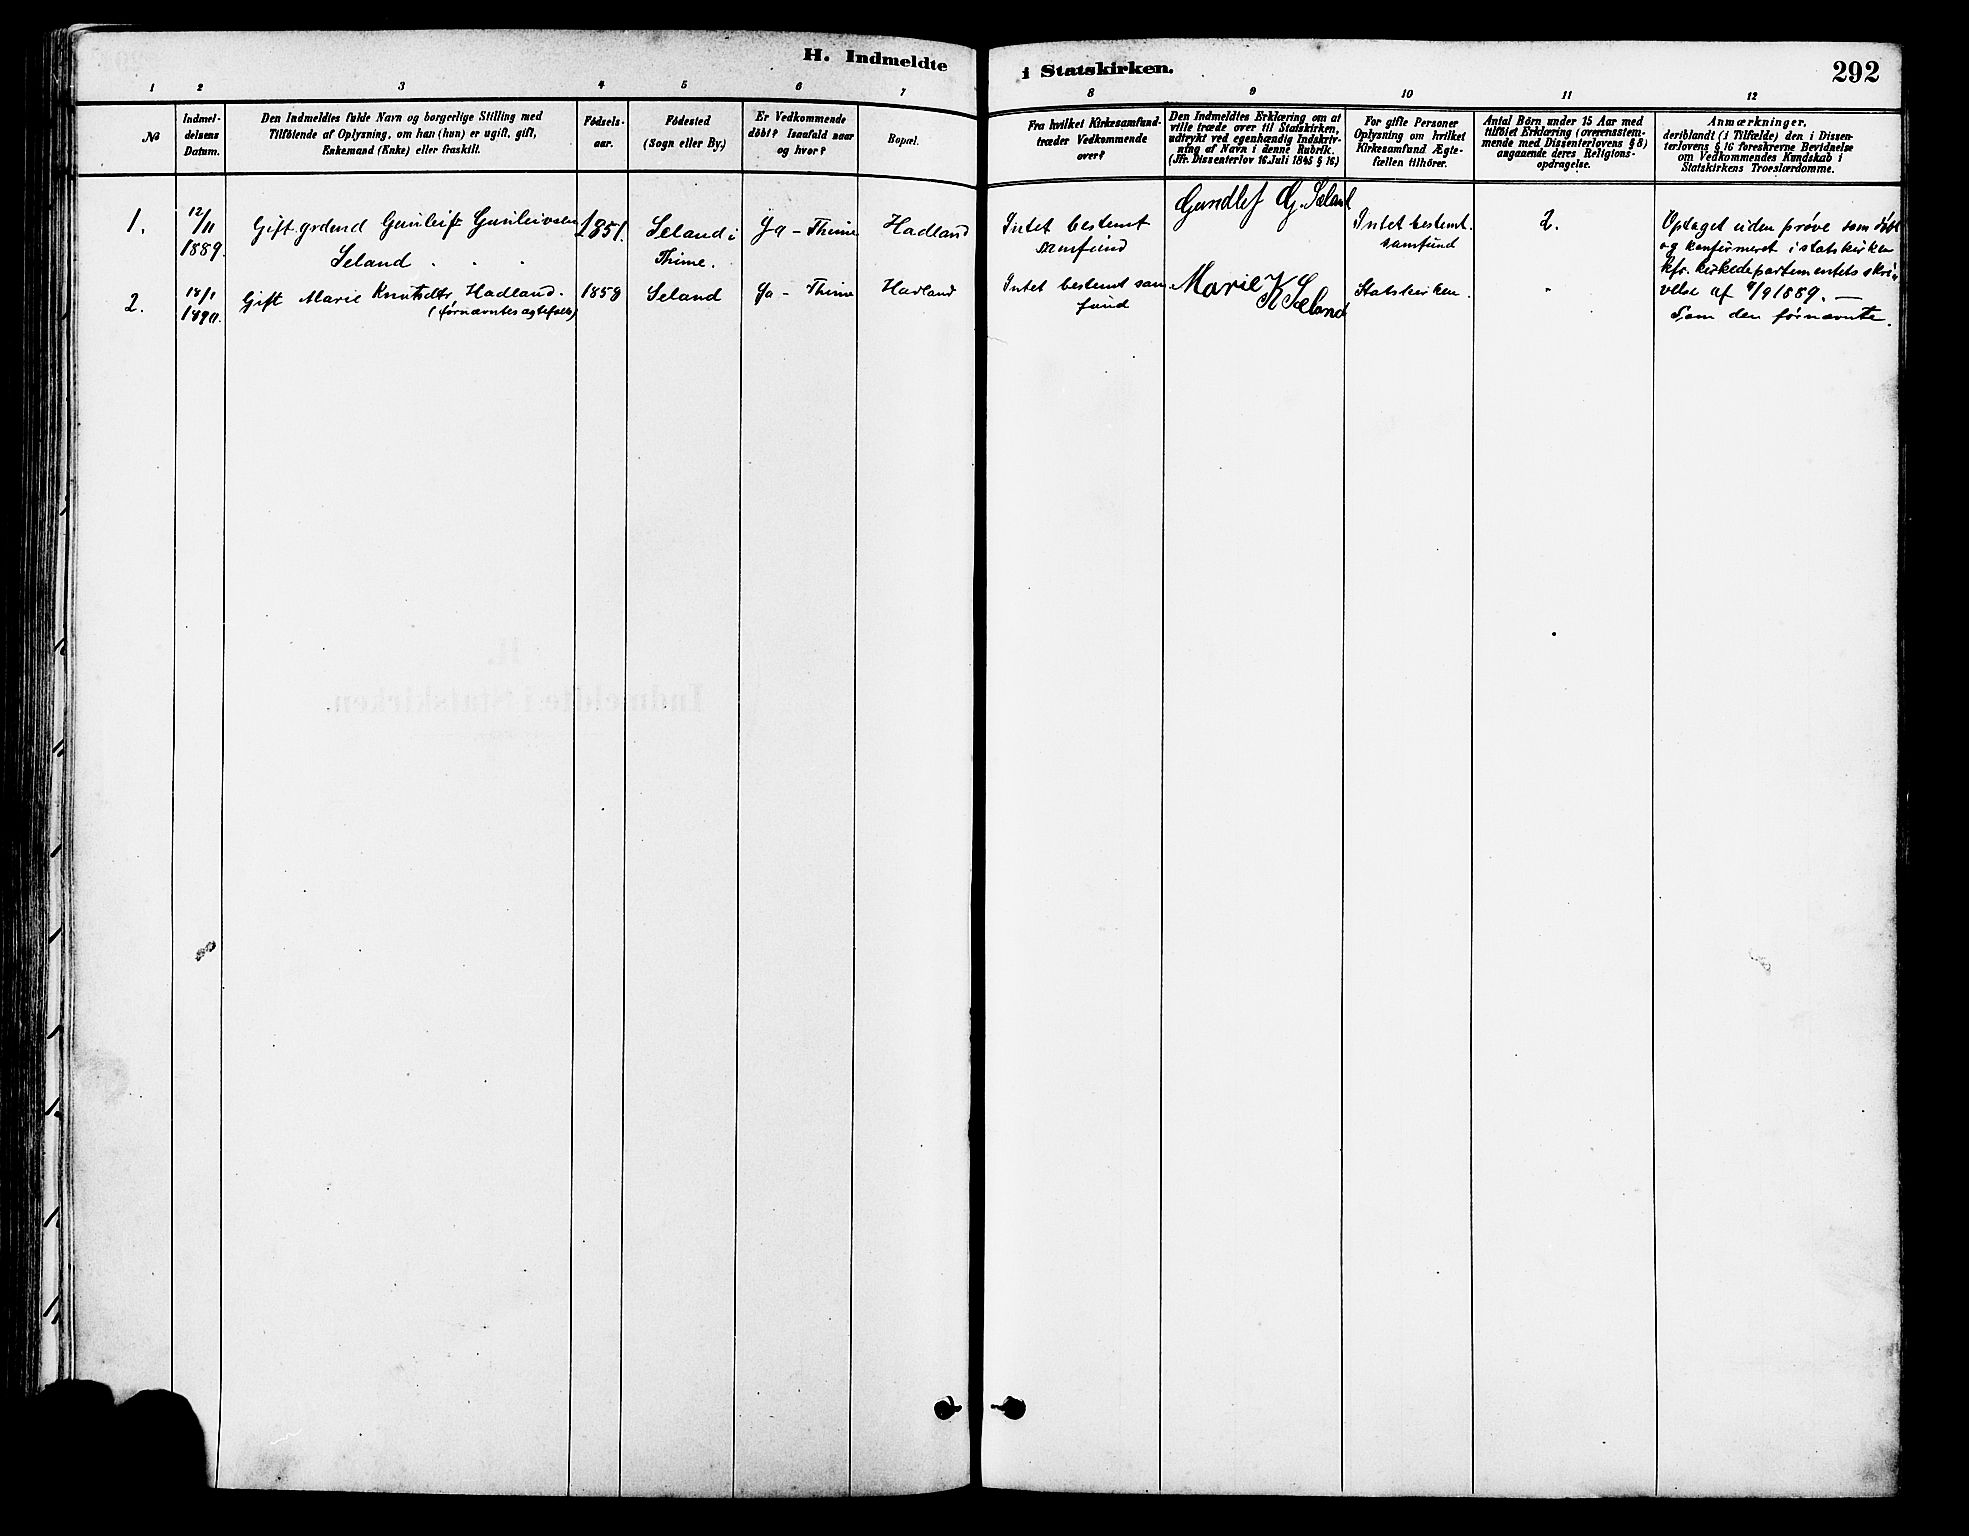 H. Indmeldte i Statskirken.
292
1 2 3 4 5 6 7 8 9 10 11 12
№
Indmel-
delsens
Datum.
Den Indmeldtes fulde Navn og borgerlige Stilling med
Tilföiende af Oplysning, om han (hun) er ugift, gift,
Enkemand (Enke) eller fraskilt.
Födsels-
aar.
Födested
(Sogn eller By.)
Er Vedkommende
döbt? Isaafald naar
og hvor?
Bopæl.
Fra hvilket Kirkesamfund
træder Vedkommende
over?
Den Indmeldtes Erklæring om at
ville træde over til Statskirken,
udtrykt ved egenhændig Indskriv-
ning af Navn i denne Rubrik.
(Jfr. Dissenterlov 16. Juli 1845 § 16)
For gifte Personer
Oplysning om hvilket
Kirkesamfund Ægte-
fællen tilhörer.
Antal Börn under 15 Aar med
tilföiet Erklæring (overensstem-
mende med Dissenterlovens § 8)
angaaende deres Religions-
opdragelse.
Anmærkninger,
deriblandt (i Tilfælde) den i Dissen-
terlovens § 16 foreskrevne Bevidnelse
om Vedkommendes Kundskab i
Statskirkens Troeslærdomme.
1.
12/11
1889.
Gift grdmd Gunleif Gunleivsen
Seland . . .
1851.
Seland i
Thime.
Ja - Thime
Hadland
Intet bestemt
samfund
Gundlef G. Sæland
Intet bestemt
samfund
2.
Optaget uden prøve som døbt
og konfirmeret i statskirken
kfr. kirkedepartementets skri-
velse af /9 1889. —
2.
18/1
1890.
Gift Marie Knutsdtr Hadland.
(førnævntes ægtefælle)
1858
Seland
Ja - Thime
Hadland
Intet bestemt sam
fund
Marie K Sæland
Statskirken.
"
Som den førnævnte.